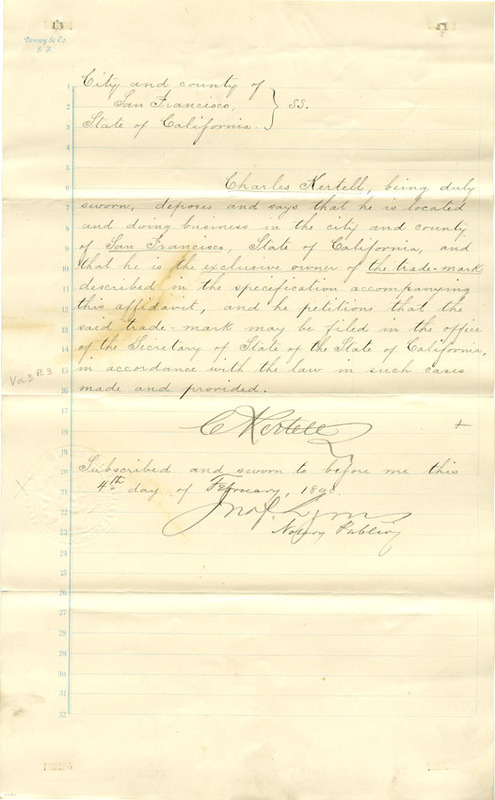 City and county of
San Francisco, } SS.
State of California.
Charles Kertell, being duly
sworn, deposes and says that he is located
and doing business in the city and county
of San Francisco, State of California, and
that he is the exclusive owner of the trade-mark
described in the specification accompanying
this affidavit, and he petitions that the
said trade-mark may be filed in the office
of the Secretary of State of the State of California,
in accordance with the law in such cases
made and provided.
C Kertell
Subscribed and sworn to before me this
4th day of February, 1890.
Notary Public
1
2
3
4
5
6
7
8
9
10
11
12
13
14
15
16
17
18
19
20
21
22
23
24
25
26
27
28
29
30
31
32